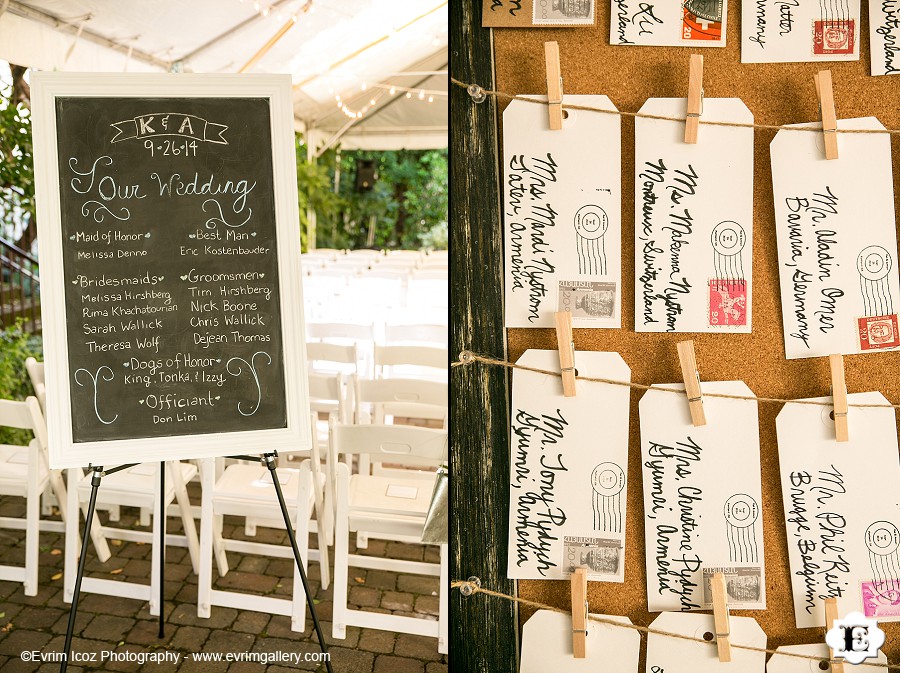 K & A
9-26-14
Our Wedding
Maid of Honor
Melissa Denno
Best Man
Eric Kostenbauder
Bridesmaids
Melissa Hirshberg
Rima Khachatourian
Sarah Wallick
Theresa Wolf
Groomsmen
Tim Hirshberg
Nick Boone
Chris Wallick
Dejean Thomas
Dogs of Honor
King, Tonka, & Izzy
Officiant
Don Lim
©Evrim Icoz Photography - www.evrimgallery.com
Germany
Switzerland
Mrs. Mardi Nystrom
Tatev, Armenia
Ms. Makenna Nystrom
Montreux, Switzerland
Mr. Aladin Omer
Bavaria, Germany
Mr. Tony Pydych
Gyumri, Armenia
Mrs. Christine Pydych
Gyumri, Armenia
Mr. Phil Reitz
Brugge, Belgium
E